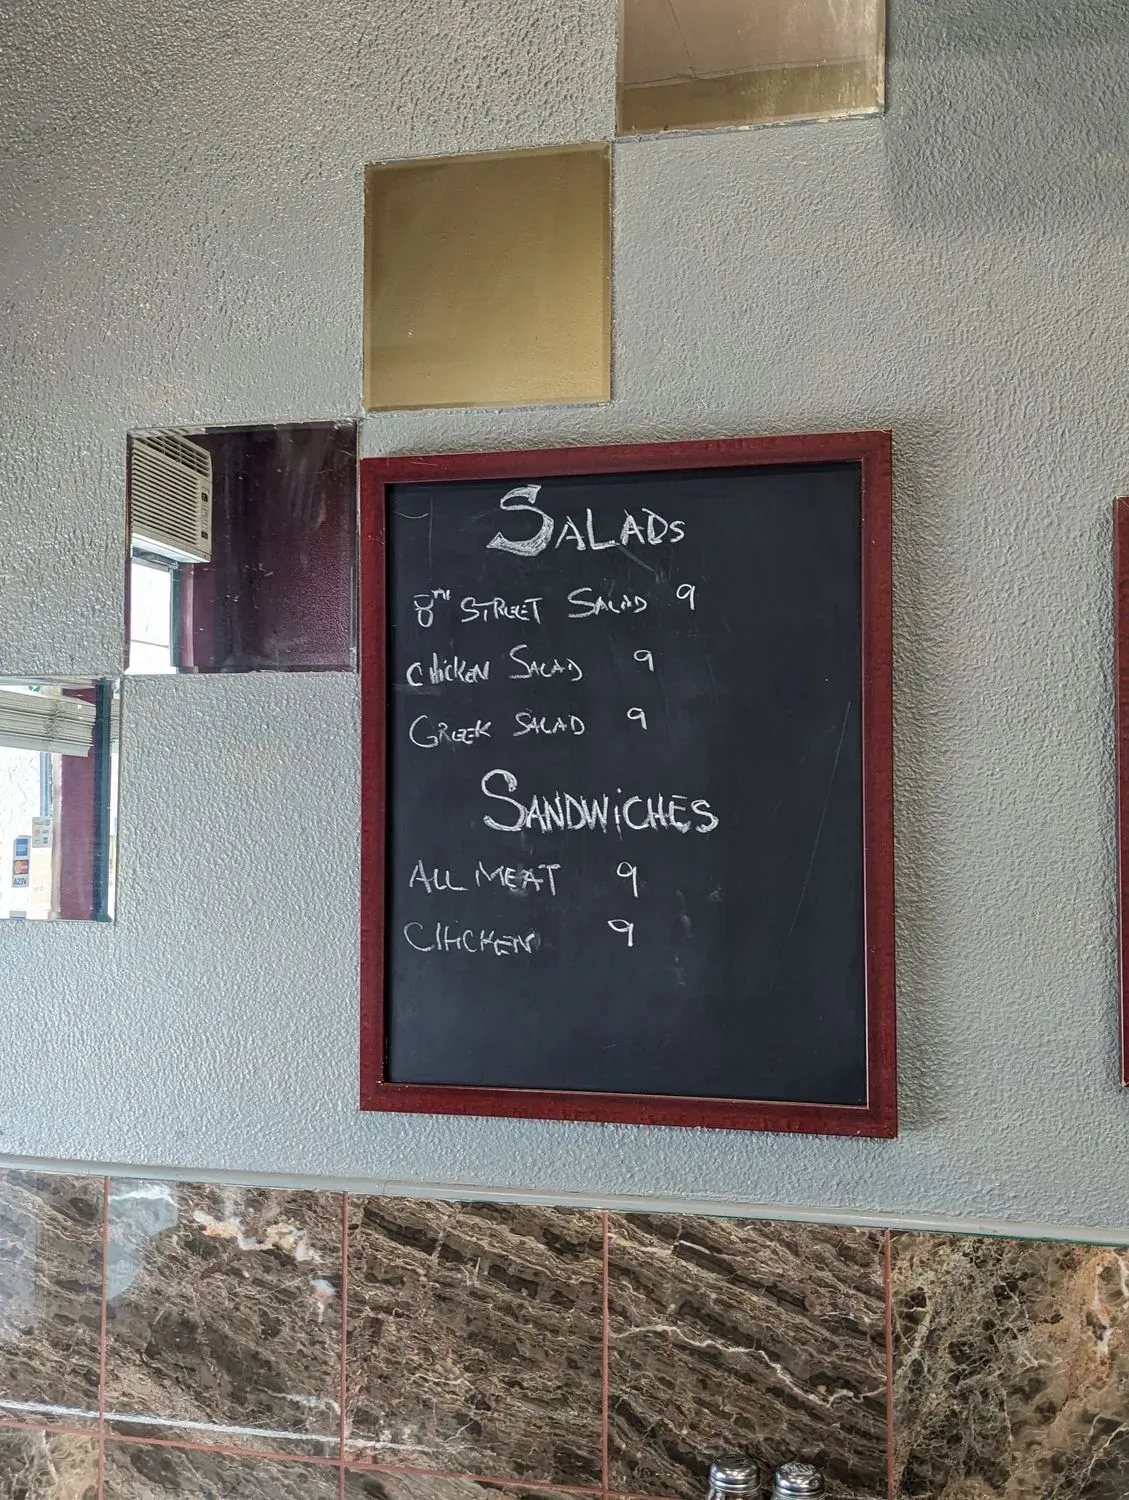 SALADS
8TH STREET SALAD 9
CHICKEN SALAD 9
GREEK SALAD 9
SANDWiCHES
ALL MEAT 9
CHICKEN 9
VISA